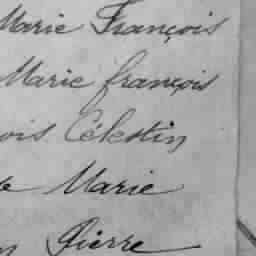 Marie François
Marie françois
ois Célestin
Marie
Pierre